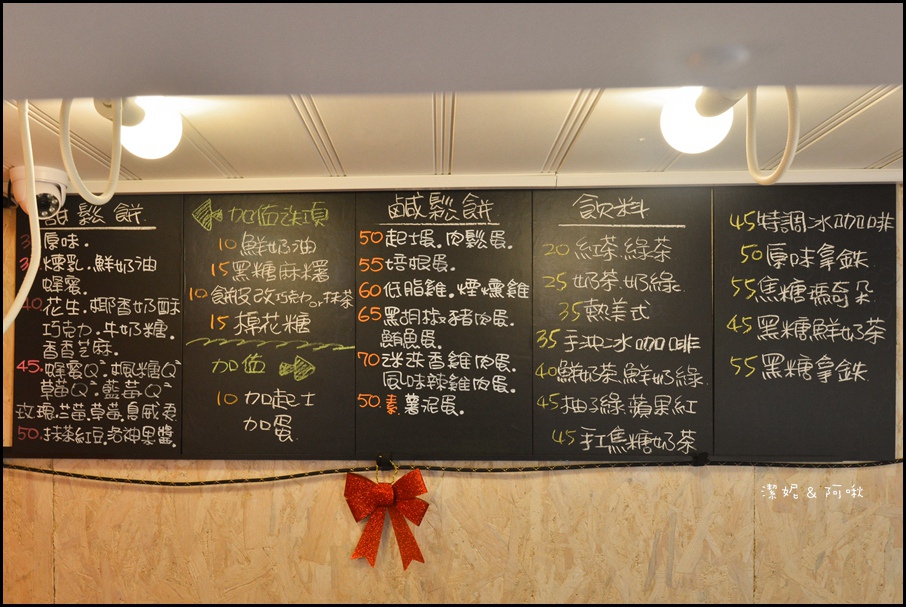 鬆餅
原味.
煉乳.鮮奶油
蜂蜜.
40.花生.椰香奶酥
巧克力.牛奶糖.
香香芝麻.
45.蜂蜜Q².楓糖Q²
草莓Q².藍莓Q²
玫瑰.草莓.
50.抹茶紅豆.洛神果醬.
加值選項
10鮮奶油
15黑糖麻糬
10.餅皮改巧克力or抹茶
15棉花糖
加值
10加起士
加蛋
鹹鬆餅
50起士蛋.肉鬆蛋.
55培根蛋.
60低脂雞.煙燻雞
65黑胡椒豬肉蛋.
鮪魚蛋.
70迷迭香雞肉蛋.
風味辣雞肉蛋.
50.素.薯泥蛋.
飲料
20紅茶.綠茶
25奶茶.奶綠.
35熱美式
35手沖冰咖啡
40鮮奶茶.鮮奶綠.
45柚子綠.蘋果紅
45手工焦糖奶茶
45特調冰咖啡
50原味拿鉄
55焦糖瑪奇朵
45黑糖鮮奶茶
55黑糖拿鉄
潔妮&阿啾